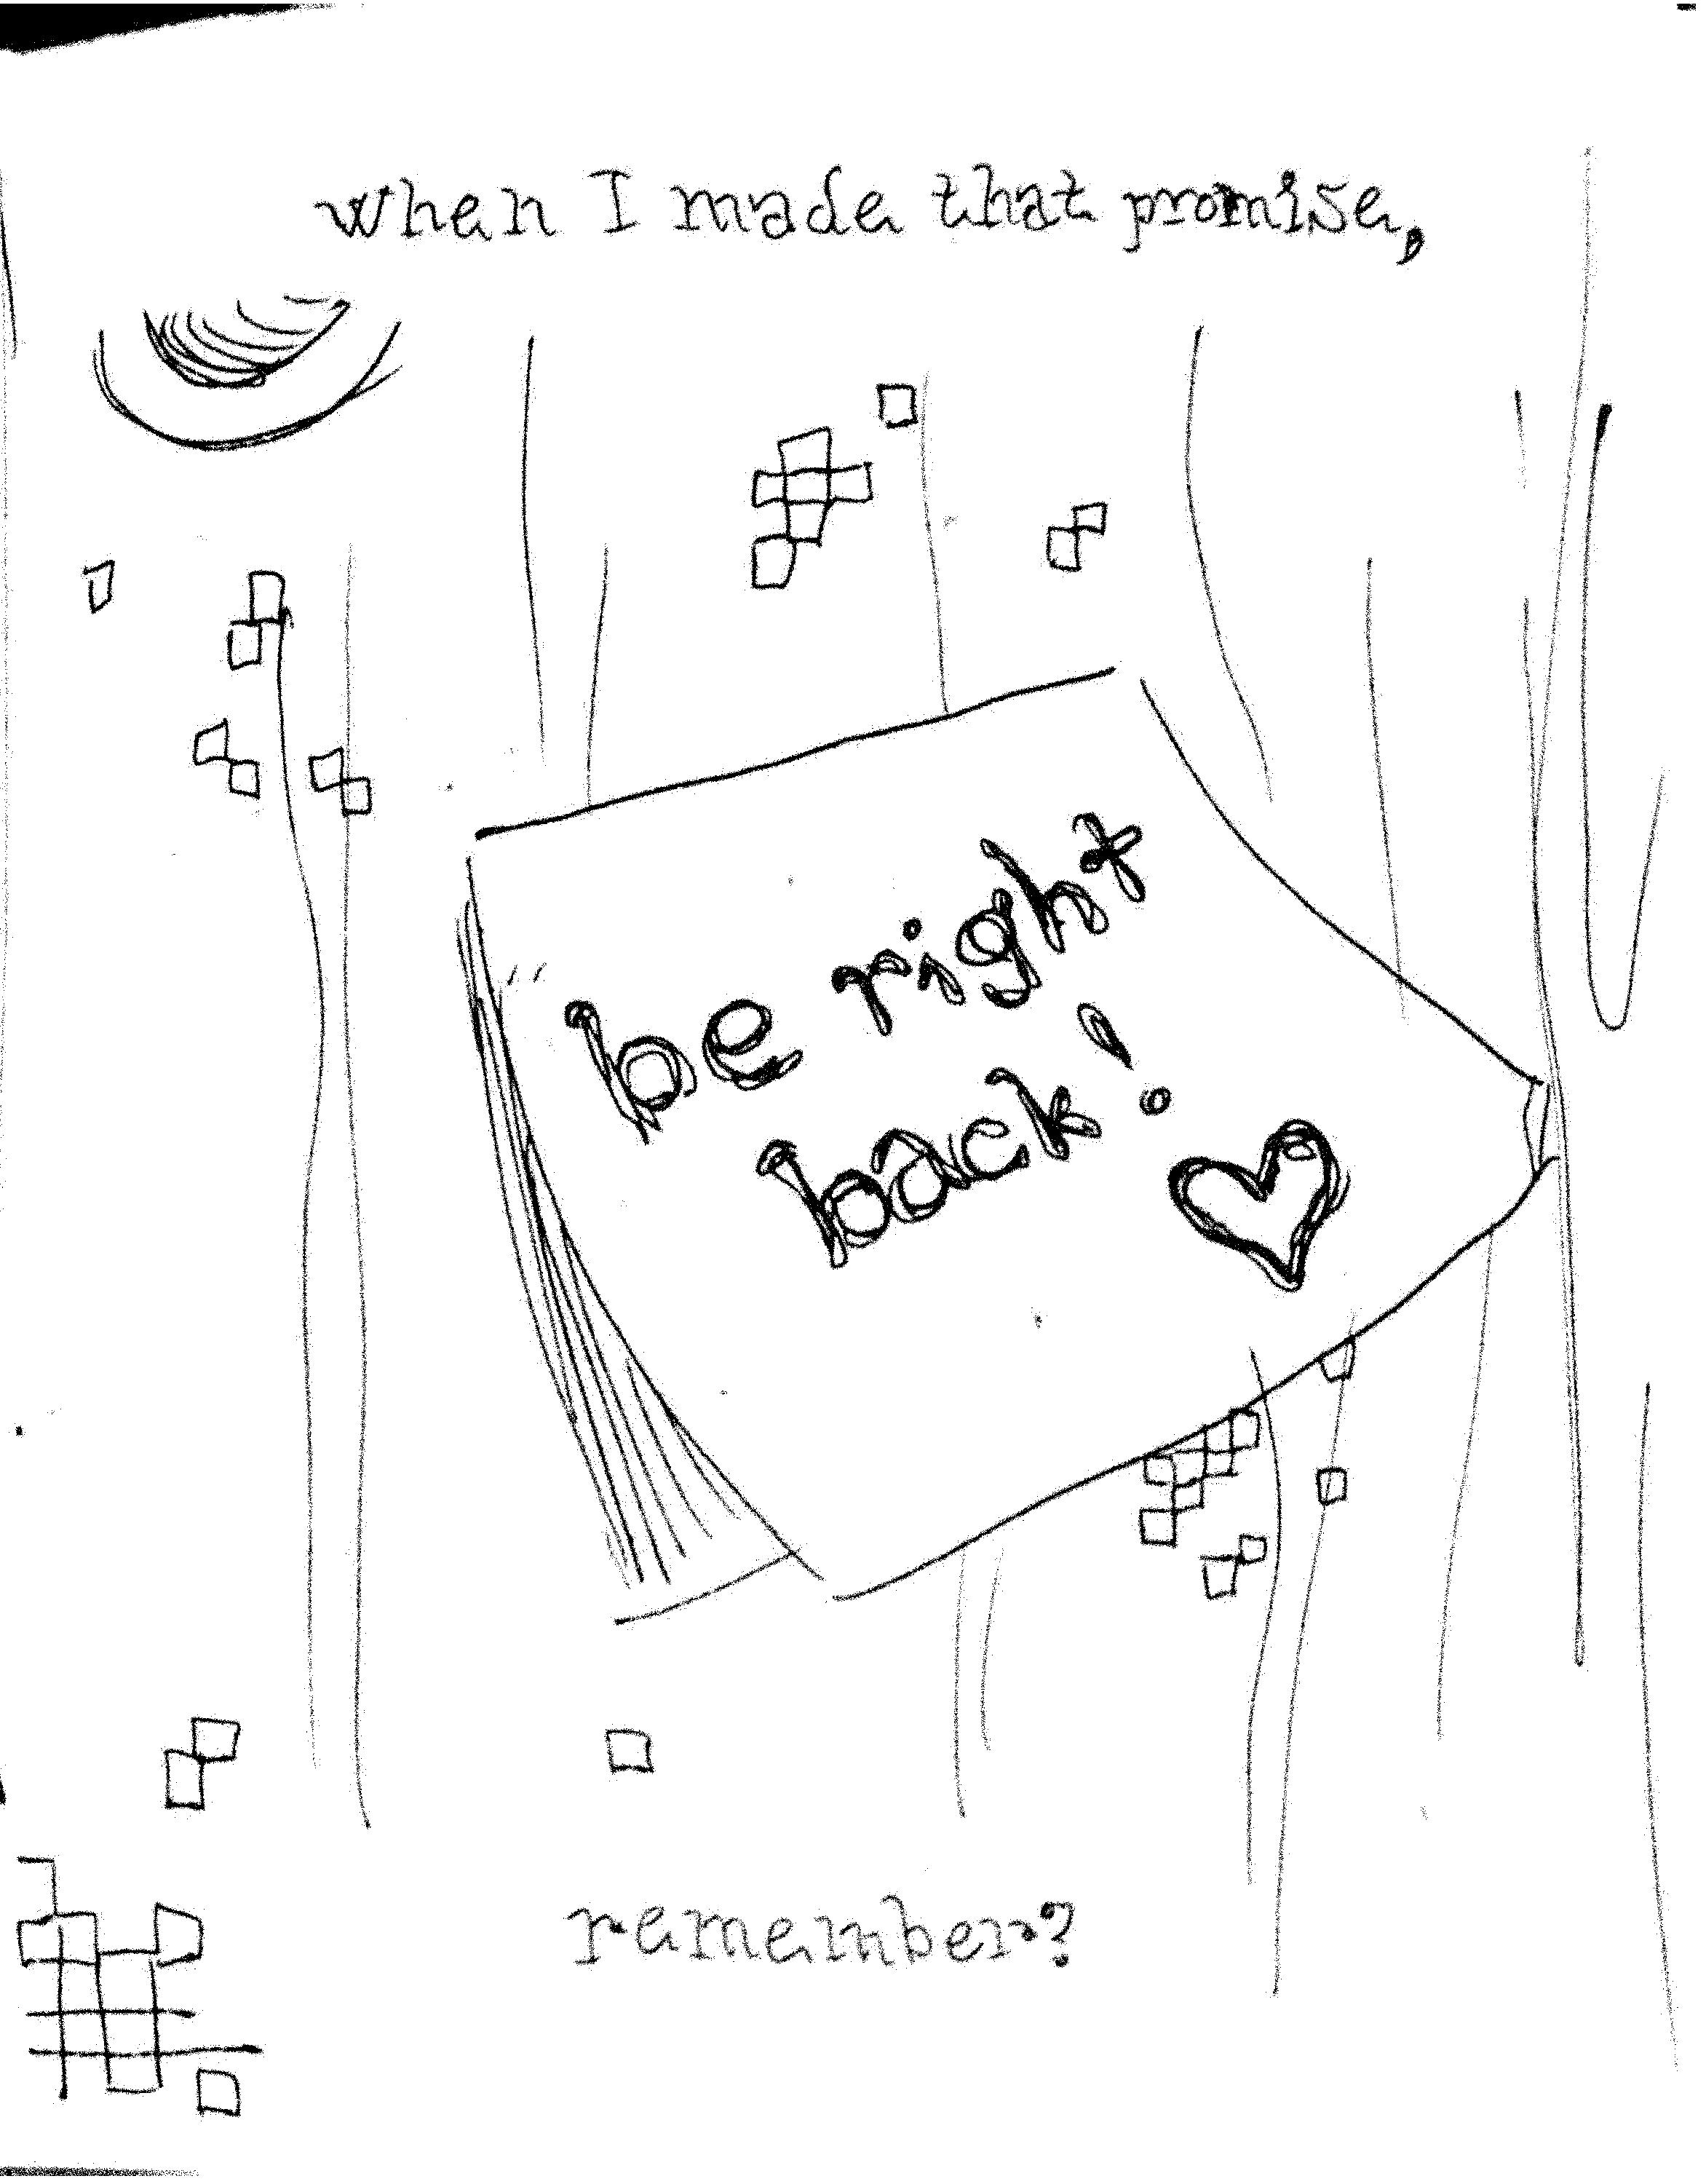 when I made that promise,
be right
back!
remember?